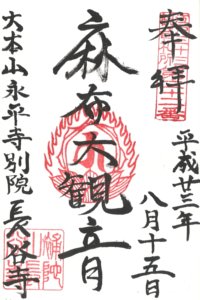 奉拝
平成廿三年
八月十五日
麻布大観音
大本山永平寺別院長谷寺